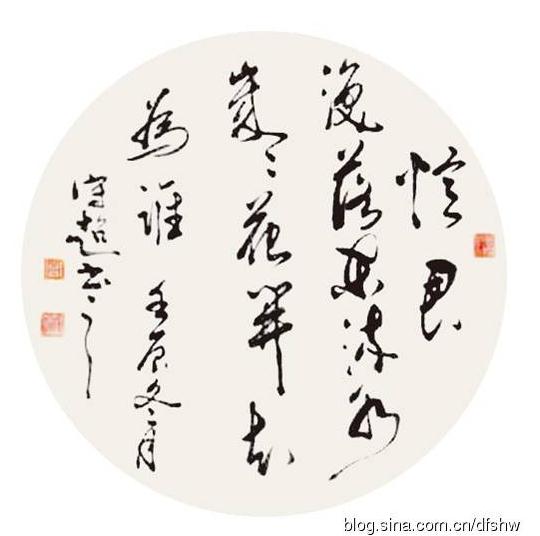 憶君
淚落东流水
歲々花開知
為誰 壬辰冬月
守超书之
blog.sina.com.cn/dfshw